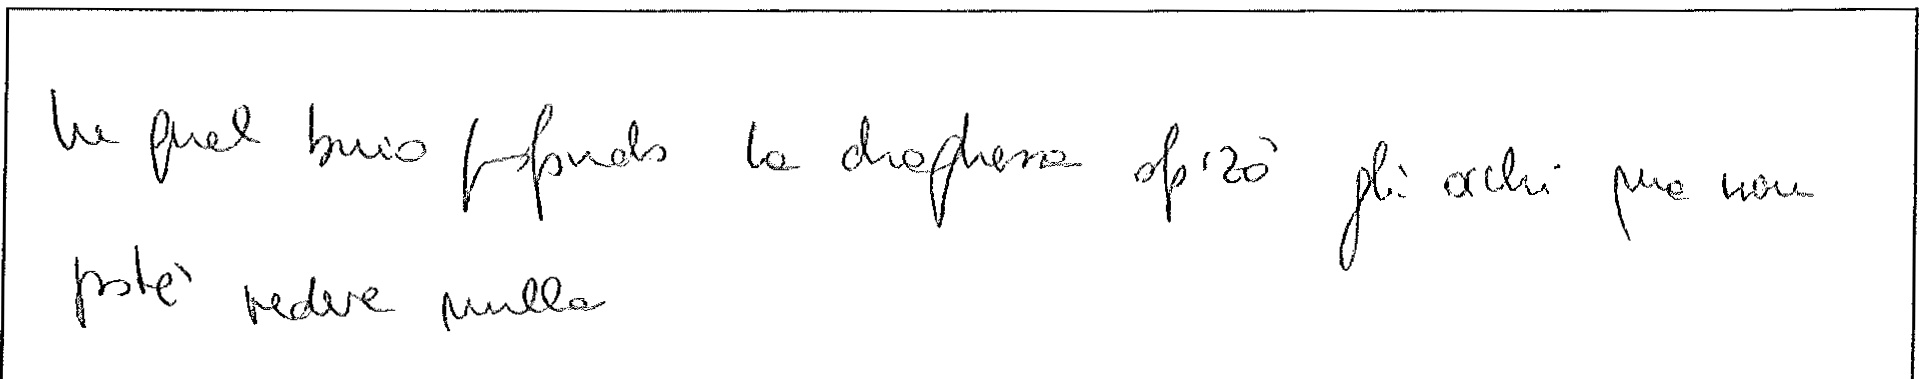 In quel buio profondo la draghessa aprì gli occhi ma non
poté vedere nulla